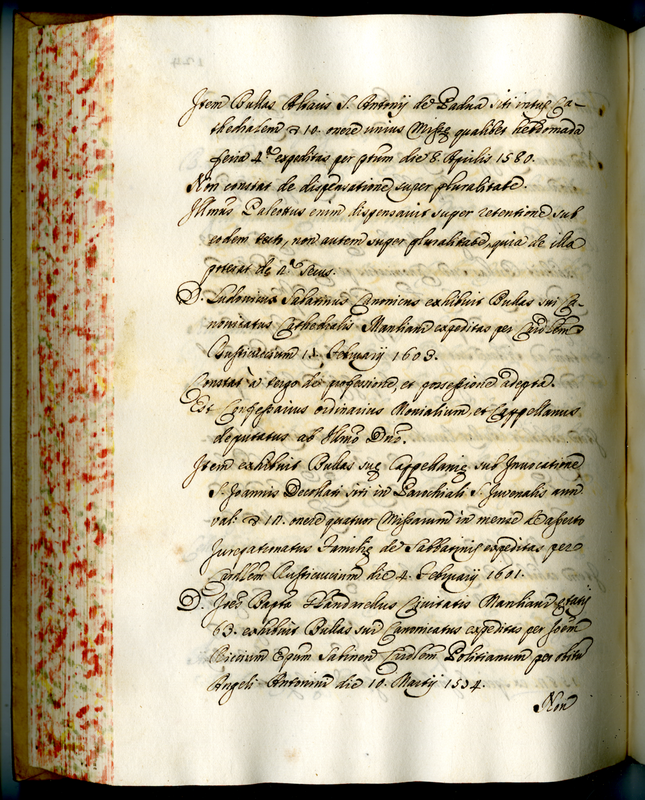 Item Bullas Altaris S. Antonij de Padua siti intus Ca-
thedralem D 10. onere unius Missę qualibet hebdomada
feria 4.ª expeditas per ptum die 8. Aprilis 1580.
Non constat de dispensatione super pluralitate.
Illmus Paleottus enim dispensavit super retentione sub
eodem tecto, non autem super pluralitate, quia de illa
poterat de n.ª secus.
D. Ludovicus Sabatinus Canonicus exhibuit Bullas sui Ca-
nonicatus Cathedralis Manliane expeditas per Cardlem
Austicucium 11. February 1603.
Constat à tergo de professione et possessione adepta.
Est Confessarius ordinarius Monialium, et Cappellanus
deputatus ab Illmo Dno.
Item exhibuit Bullas suę Cappellanię sub Invocatione
S. Joannis Decollati siti in Parochiali S. Juvenalis ann
val: D 12. onere quatuor Missarum in mense de asserto
Jurepatronatus Familię de Sabbatinis expeditas per
Cardlem Austicucium die 4. February 1601.
D. Jo: Bapta Blandanellus Civitatis Manliane ętatis
63. exhibuit Bullas sui Canonicatus expeditas per
Epum Sabinen Cardlem Politianum per obitū
Angeli Antonini die 10. Martij 1534.
Non